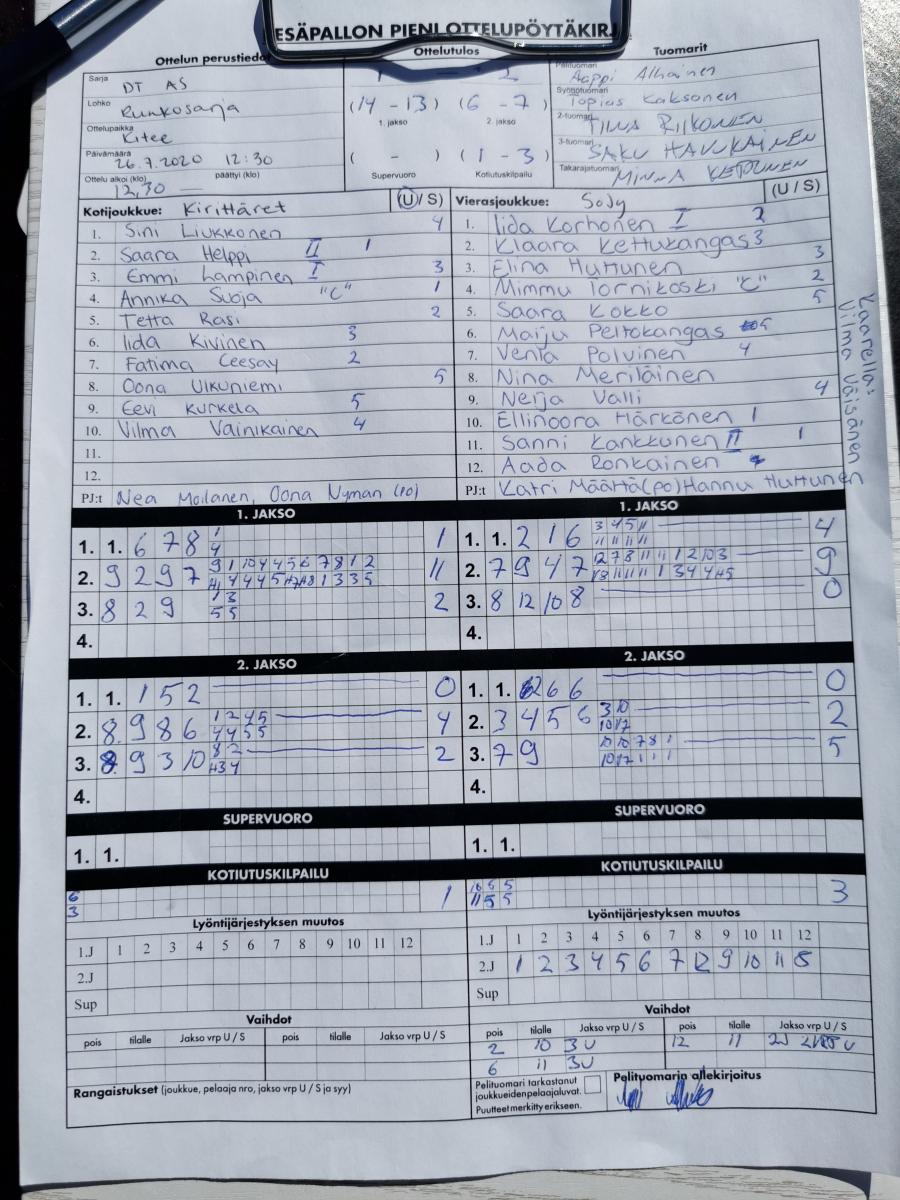 ESÄPALLON PIENI OTTELUPÖYTÄKIRJ
Ottelun perustiedo
Ottelutulos
Tuomarit
Sarja DT AS
Lohko Runkosarja
Ottelupaikka Kitee
Päivämäärä 26.7.2020 12:30
Ottelu alkoi (klo) päättyi (klo)
12,30 —
- 2
(14 - 13) (6 - 7)
1. jakso 2. jakso
( - ) (1 - 3)
Supervuoro Kotiutuskilpailu
Pelituomari Aappi Alhainen
Syöttötuomari Topias Kaksonen
2-tuomari TIINA RIIKONEN
3-tuomari SAKU HAVUKAINEN
Takarajatuomari MINNA KETOLAINEN
Kotijoukkue: Kirittäret (U / S)
1. Sini Liukkonen 4
2. Saara Helppi II 1
3. Emmi Lampinen I 3
4. Annika Suoja "C" 1
5. Tetta Rasi 2
6. Iida Kivinen 3
7. Fatima Ceesay 2
8. Oona Ulkuniemi 5
9. Eevi Kurkela 5
10. Vilma Vainikainen 4
11.
12.
PJ:t Nea Moilanen, Oona Nyman (PO)
Vierasjoukkue: SoJy (U / S)
1. Iida Korhonen I 2
2. Klaara Kettukangas 3
3. Elina Huttunen 3
4. Mimmu Tornikoski "C" 2
5. Saara Kokko 5
6. Maiju Peltokangas 5
7. Venla Polvinen 4
8. Nina Meriläinen
9. Nerja Valli 4
10. Ellinoora Härkönen 1
11. Sanni Kankkunen II 1
12. Aada Ronkainen
PJ:t Katri Määttä (PO) Hannu Huttunen
Kaarella:
Vilma Väisänen
1. JAKSO
1. 1. 6 7 8 1
4
1
2. 9 2 9 7
11
3. 8 2 9 1 3
5 5
2
4.
1. JAKSO
1. 1. 2 1 6 3 4 5 11
11 11 11 11
4
2. 7 9 4 7 12 7 8 11 11 1 2 10 3
9
3. 8 12 10 8 0
4.
2. JAKSO
1. 1. 1 5 2 0
2. 8 9 8 6 1 2 4 5
4 4 5 5
4
3. 8 9 3 10 8 2
2
4.
2. JAKSO
1. 1. 6 6 0
2. 3 4 5 6 3 10
10 12
2
3. 7 9 10 10 7 8 1
10 12 1 1 1
5
4.
SUPERVUORO
1. 1.
SUPERVUORO
1. 1.
KOTIUTUSKILPAILU
6
3
1
KOTIUTUSKILPAILU
10 5 5
11 5 5
3
Lyöntijärjestyksen muutos
1.J 1 2 3 4 5 6 7 8 9 10 11 12
2.J
Sup
Lyöntijärjestyksen muutos
1.J 1 2 3 4 5 6 7 8 9 10 11 12
2.J 1 2 3 4 5 6 7 12 9 10 11 8
Sup
Vaihdot
pois tilalle Jakso vrp U / S pois tilalle Jakso vrp U / S
Vaihdot
pois tilalle Jakso vrp U / S pois tilalle Jakso vrp U / S
2 10 3U 12 11 2J U
6 11 3U
Rangaistukset (joukkue, pelaaja nro, jakso vrp U / S ja syy)
Pelituomari tarkastanut
joukkueiden pelaajaluvat.
Puutteet merkitty erikseen.
Pelituomarin allekirjoitus